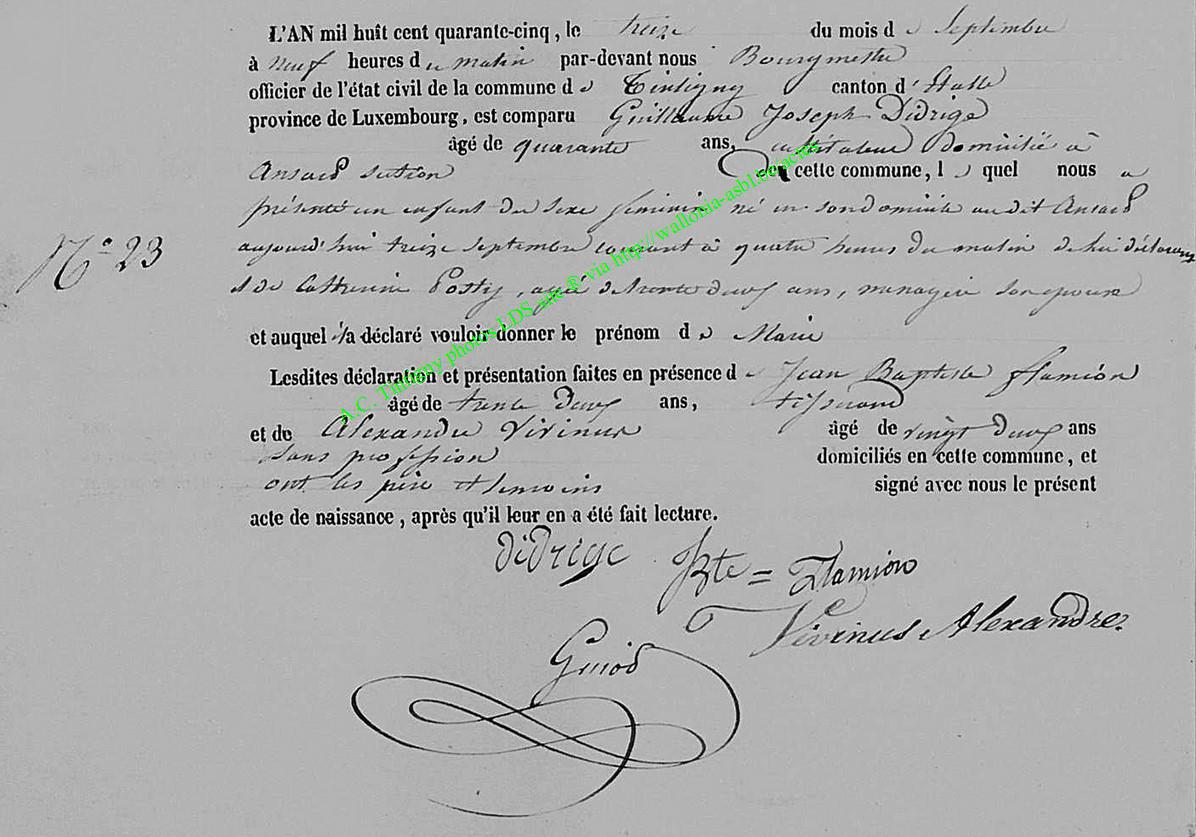 L'AN mil huit cent quarante-cinq, le treize du mois de Septembre
à neuf heures du matin par-devant nous Bourgmestre
officier de l'état civil de la commune de Tintigny canton d'Etalle
province de Luxembourg, est comparu Guillaume Joseph Didrige
âgé de quarante ans, instituteur domicilié à
Ansard section de cette commune, lequel nous a
présenté un enfant du sexe féminin né en son domicile au dit Ansard
N.º 23
aujourd'hui treize Septembre courant à quatre heures du matin de lui déclarant
et de Catherine Posty, agée de trente deux ans, menagère son épouse
et auquel il a déclaré vouloir donner le prénom de Marie
Lesdites déclaration et présentation faites en présence de Jean Baptiste Flamion
âgé de trente deux ans, tisserand
et de Alexandre Vivinus âgé de vingt deux ans
sans profession domiciliés en cette commune, et
ont les père et temoins signé avec nous le présent
acte de naissance, après qu'il leur en a été fait lecture.
Didrige Jbte = Flamion
Vivinus Alexandre
Guiod
A.C. Tintigny photos LDS aite ® via http://wallonia-asbl.be/actes